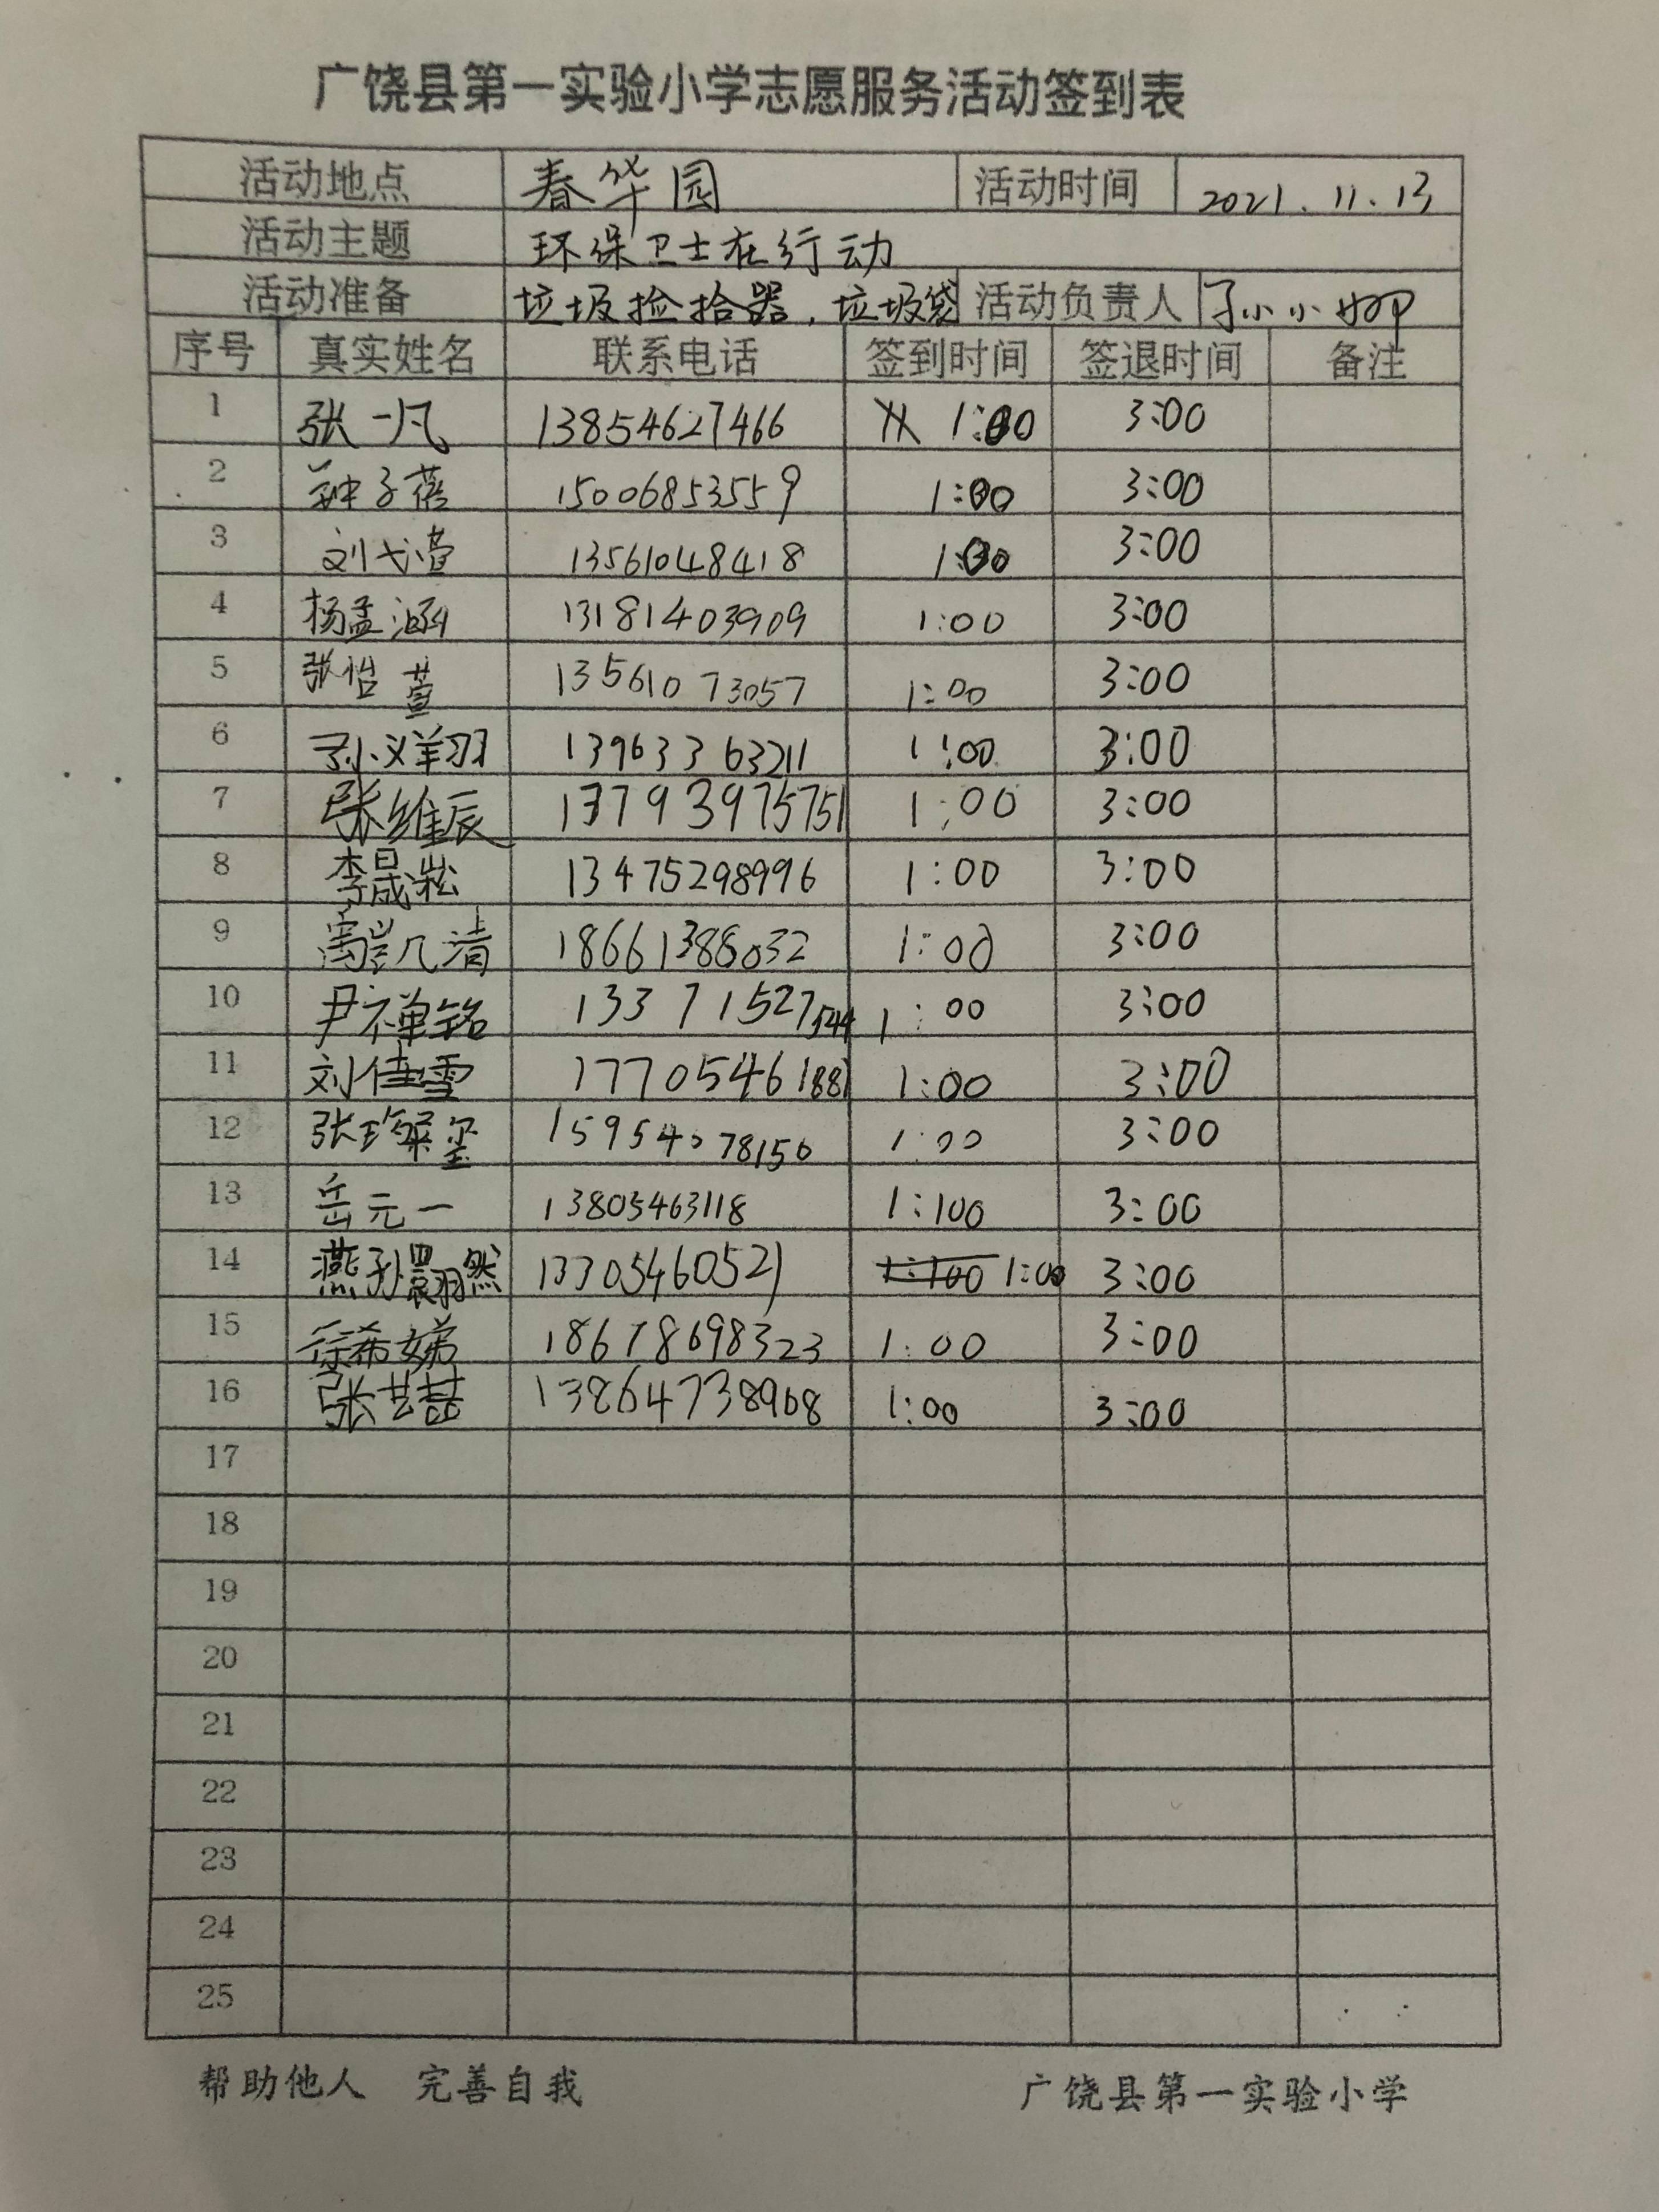 广饶县第一实验小学志愿服务活动签到表
活动地点 春华园 活动时间 2021.11.13
活动主题 环保卫士在行动
活动准备 垃圾捡拾器，垃圾袋 活动负责人 孙小娜
序号 真实姓名 联系电话 签到时间 签退时间 备注
1 张一凡 13854627466 1:00 3:00
2 钟子蓓 15006853559 1:00 3:00
3 刘弋萱 13561048418 1:00 3:00
4 杨孟涵 13181403909 1:00 3:00
5 张怡萱 13561073057 1:00 3:00
6 孙义翔 13963363211 1:00 3:00
7 张维辰 13793975751 1:00 3:00
8 李晟淞 13475298996 1:00 3:00
9 凯清 18661388032 1:00 3:00
10 尹禅铭 13371527544 1:00 3:00
11 刘佳雪 17705461881 1:00 3:00
12 张珍粲玺 15954078150 1:00 3:00
13 岳元一 13805463118 1:100 3:00
14 燕孙翾然 13305460521 1:100 1:00 3:00
15 徐希娣 18678698323 1:00 3:00
16 张艺喆 13864738968 1:00 3:00
17
18
19
20
21
22
23
24
25
帮助他人 完善自我 广饶县第一实验小学